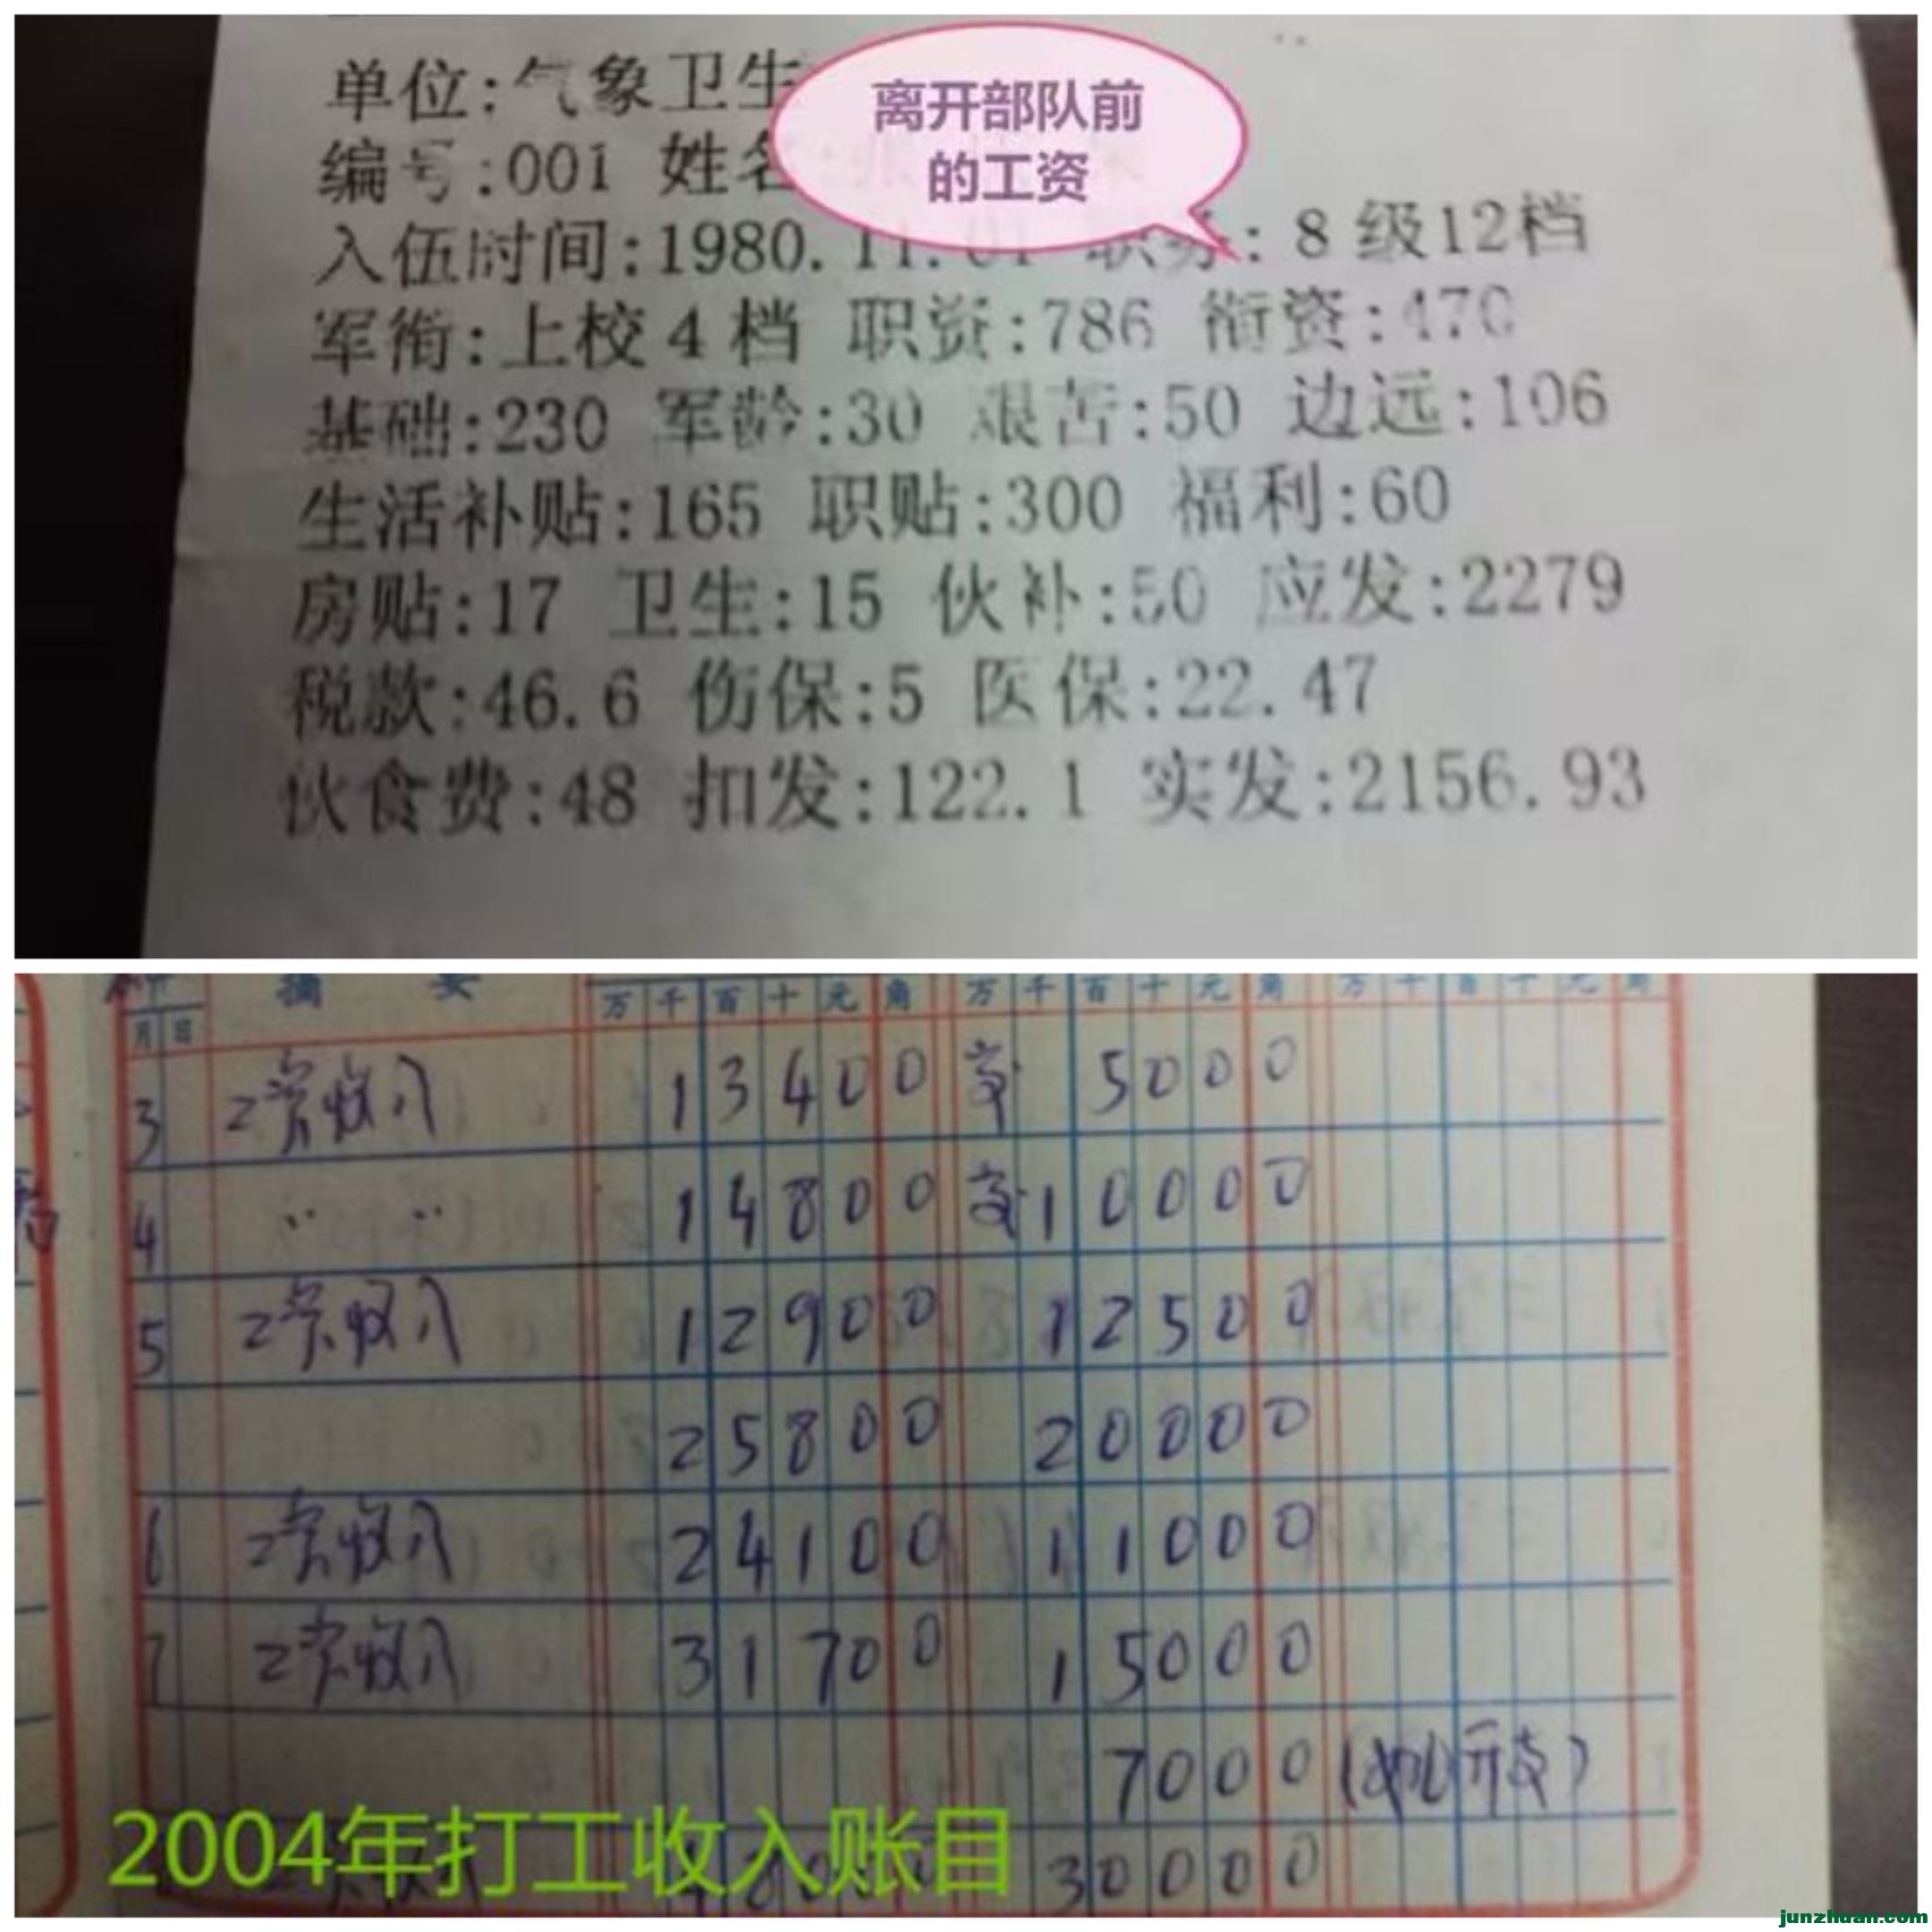 单位:气象卫生
离开部队前
的工资
编号:001 姓名:
入伍时间:1980.11.01 职务: 8级12档
军衔:上校4档 职资:786 衔资:470
基础:230 军龄:30 艰苦:50 边远:106
生活补贴:165 职贴:300 福利:60
房贴:17 卫生:15 伙补:50 应发:2279
税款:46.6 伤保:5 医保:22.47
伙食费:48 扣发:122.1 实发:2156.93
摘 要
月 日 万 千 百 十 元 角 万 千 百 十 元 角 万 千 百 十 元 角
3 工资收入 13400 支 5000 0
4 〃 〃 14800 支 10000
5 工资收入 12900 12500
25800 20000
6 工资收入 24100 11000
7 工资收入 31700 15000
7000 ( 开支)
2004年打工收入账目
30000
junzhuan.com